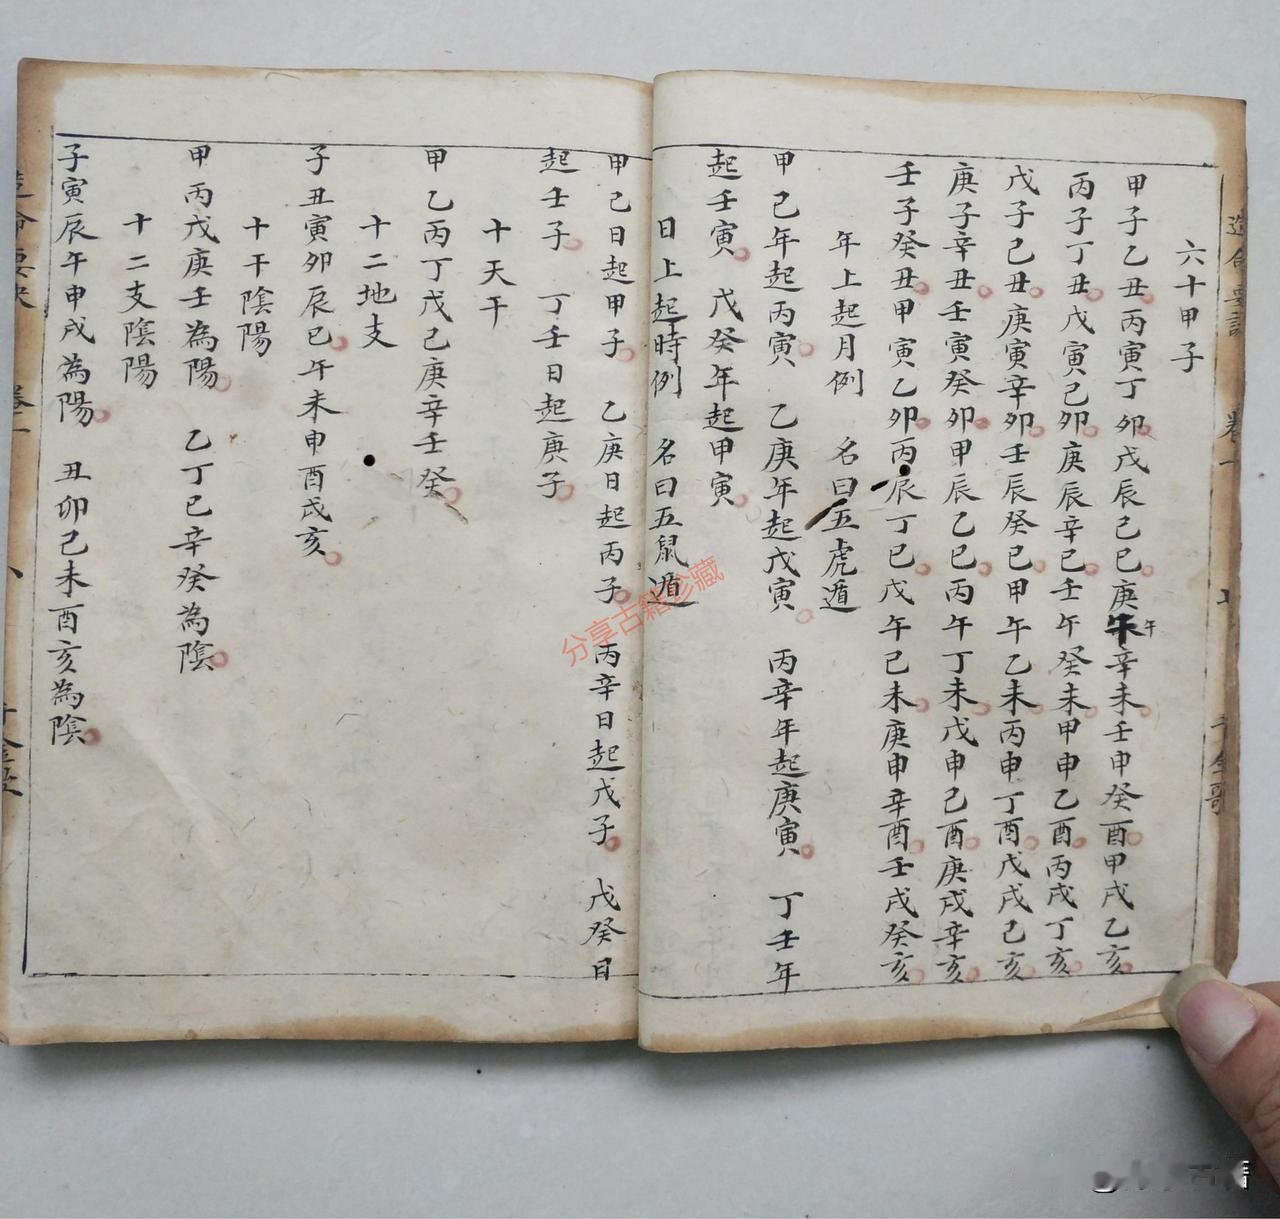 六十甲子
甲子乙丑丙寅丁卯戊辰己巳庚午辛未壬申癸酉甲戌乙亥
丙子丁丑戊寅己卯庚辰辛巳壬午癸未甲申乙酉丙戌丁亥
戊子己丑庚寅辛卯壬辰癸巳甲午乙未丙申丁酉戊戌己亥
庚子辛丑壬寅癸卯甲辰乙巳丙午丁未戊申己酉庚戌辛亥
壬子癸丑甲寅乙卯丙辰丁巳戊午己未庚申辛酉壬戌癸亥
年上起月例 名曰五虎遁
甲己年起丙寅 乙庚年起戊寅 丙辛年起庚寅 丁壬年
起壬寅 戊癸年起甲寅
日上起時例 名曰五鼠遁
甲己日起甲子 乙庚日起丙子 丙辛日起戊子 戊癸日
起壬子 丁壬日起庚子
十天干
甲乙丙丁戊己庚辛壬癸
十二地支
子丑寅卯辰巳午未申酉戌亥
十干陰陽
甲丙戊庚壬為陽 乙丁己辛癸為陰
十二支陰陽
子寅辰午申戌為陽 丑卯巳未酉亥為陰
造命要訣 卷一
分享古籍珍藏